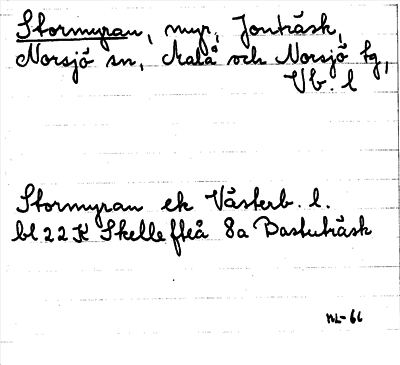 Stormyran, myr, Jonträsk,
Norsjö sn, Malå och Norsjö tg,
Vb. l
Stormyran ek Västerb. l.
bl 22 K Skellefteå 8a Bastuträsk
ML-66